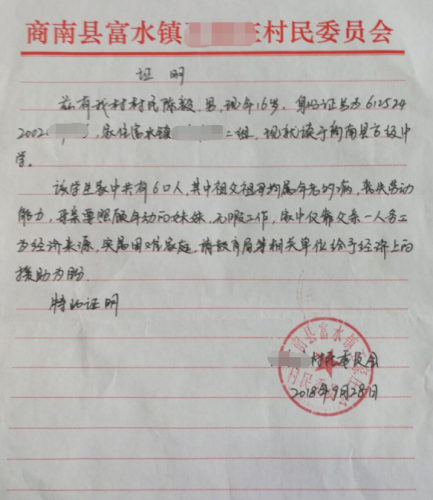 商南县富水镇 村民委员会
证明
兹有我村村民陈毅,男,现年16岁,身份证号为612524
2002 ,家住富水镇 二组,现就读于商南县高级中
学。
该学生家中共有6口人,其中祖父祖母均属年老多病,丧失劳动
能力,母亲要照顾年幼的妹妹,无暇工作,家中仅靠父亲一人务工
为经济来源,实属困难家庭,请教育局等相关单位给予经济上的
援助为盼
特此证明
村民委员会
2018年9月28日